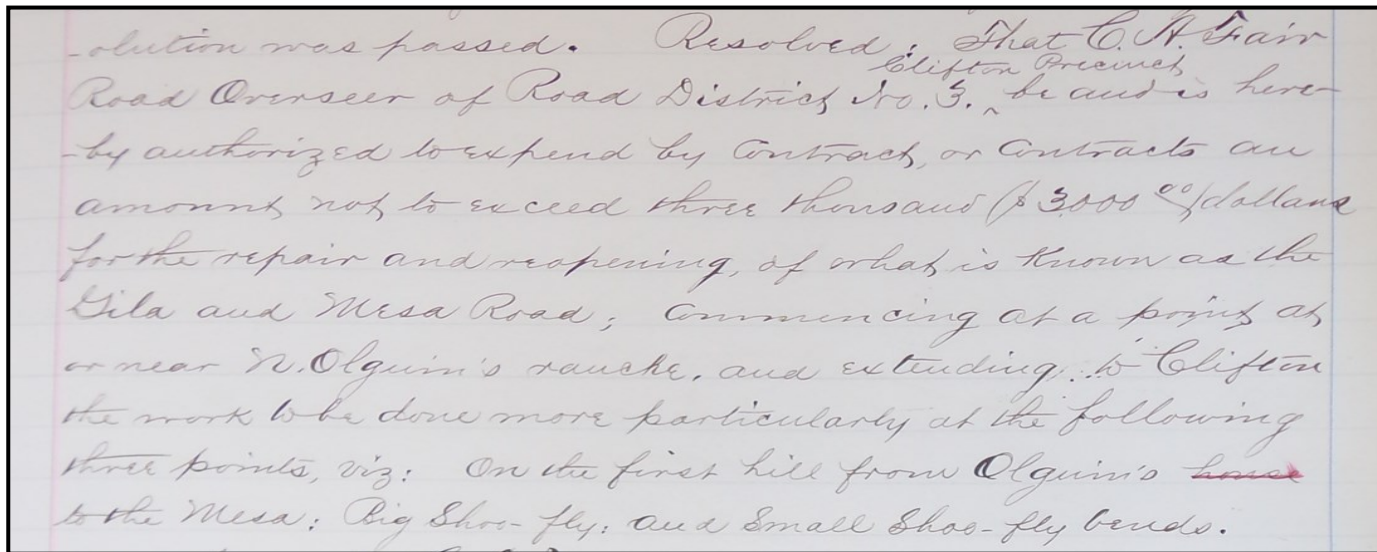 -olution was passed. Resolved: That C. A. Fair
Clifton Precinct
Road Overseer of Road District No. 3. ^ be and is here-
-by authorized to expend by Contract, or Contracts an
amount not to exceed three thousand ($3,000 00/) dollars
for the repair and reopening, of what is Known as the
Gila and Mesa Road; Commencing at a point at
or near N. Olguin's ranche, and extending to Clifton
the work to be done more particularly at the following
three points, viz: On the first hill from Olguin's house
to the Mesa; Big Shoo-fly; and Small Shoo-fly bends.